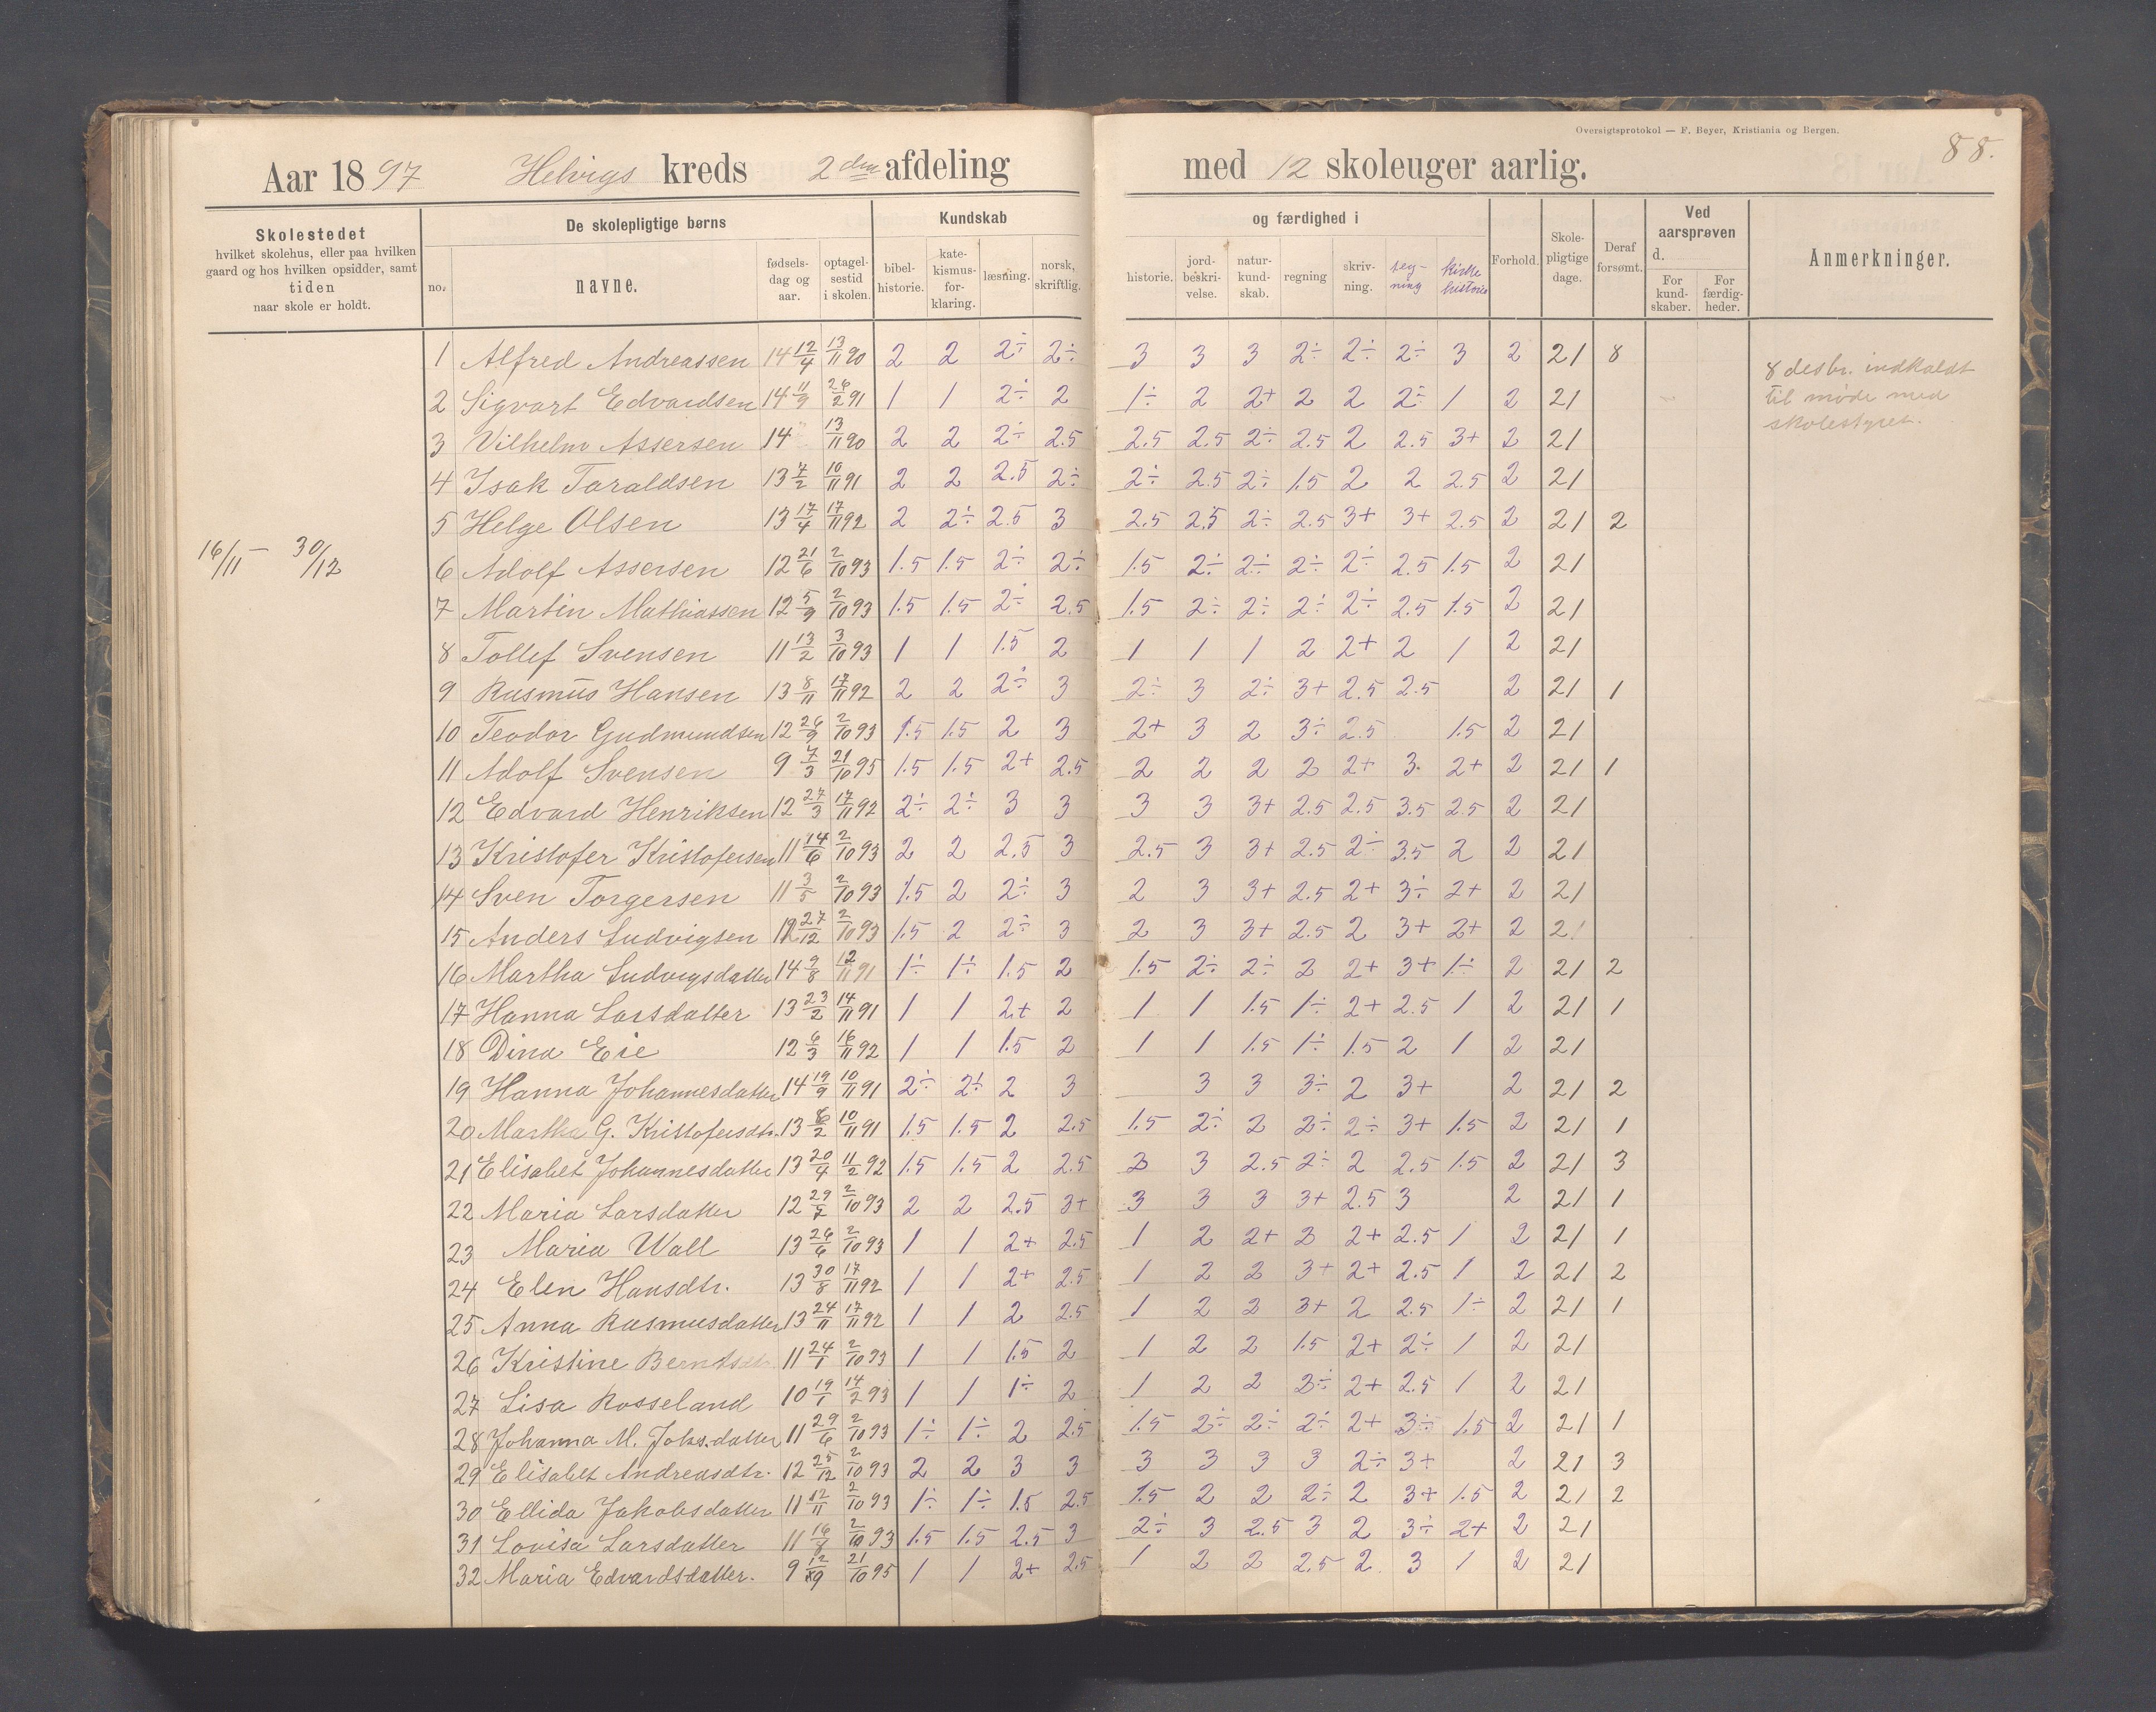 Oversigtsprotokol — F. Beyer, Kristiania og Bergen.
88.
Aar 1897 Helvigs kreds 2den afdeling med 12 skoleuger aarlig.
Skolestedet
hvilket skolehus, eller paa hvilken
gaard og hos hvilken opsidder, samt
tiden
naar skole er holdt.
De skolepligtige børns
no. navne. fødsels-dag og aar. optagel-sestid i skolen.
Kundskab og færdighed i
bibel-historie. kate-kismus-for-klaring. læsning. norsk, skriftlig. historie. jord-beskri-velse. natur-kund-skab. regning skriv-ning. teg-ning kirke historie
Forhold. Skole-pligtige dage. Deraf forsømt.
Ved aarsprøven d.
For kund-skaber. For færdig-heder.
Anmerkninger.
16/11 – 30/12
1 Alfred Andreassen 14 12/4 13/11 90 2 2 2÷ 2÷ 3 3 3 2÷ 2÷ 2÷ 3 2 21 8
8 desbr. indkaldt
til møde med
skolestyret.
2 Sigvart Edvardsen 14 11/9 26/2 91 1 1 2÷ 2 1÷ 2 2+ 2 2 2÷ 1 2 21
3 Vilhelm Assersen 14 13/11 90 2 2 2÷ 2.5 2.5 2.5 2÷ 2.5 2 2.5 3+ 2 21
4 Isak Taraldsen 13 7/2 10/11 91 2 2 2.5 2÷ 2÷ 2.5 2÷ 1.5 2 2 2.5 2 21
5 Helge Olsen 13 17/4 17/11 92 2 2÷ 2.5 3 2.5 2.5 2÷ 2.5 3+ 3+ 2.5 2 21 2
6 Adolf Assersen 12 21/6 2/10 93 1.5 1.5 2÷ 2÷ 1.5 2÷ 2÷ 2÷ 2÷ 2.5 1.5 2 21
7 Martin Mathiassen 12 5/9 2/10 93 1.5 1.5 2÷ 2.5 1.5 2÷ 2÷ 2÷ 2÷ 2.5 1.5 2 21
8 Tollef Svensen 11 13/2 3/10 93 1 1 1.5 2 1 1 1 2 2+ 2 1 2 21
9 Rasmus Hansen 13 8/11 17/11 92 2 2 2÷ 3 2÷ 3 2÷ 3+ 2.5 2.5 2 21 1
10 Teodor Gudmundsen 12 26/9 2/10 93 1.5 1.5 2 3 2+ 3 2 3÷ 2.5 1.5 2 21
11 Adolf Svensen 9 7/3 21/10 95 1.5 1.5 2+ 2.5 2 2 2 2 2+ 3. 2+ 2 21 1
12 Edvard Henriksen 12 27/3 17/11 92 2÷ 2÷ 3 3 3 3 3+ 2.5 2.5 3.5 2.5 2 21
13 Kristofer Kristofersen 11 14/6 2/10 93 2 2 2.5 3 2.5 3 3+ 2.5 2÷ 3.5 2 2 21
14 Sven Torgersen 11 3/5 2/10 93 1.5 2 2÷ 3 2 3 3+ 2.5 2+ 3÷ 2+ 2 21
15 Anders Ludvigsen 12 27/12 2/10 93 1.5 2 2÷ 3 2 3 3+ 2.5 2 3+ 2+ 2 21
16 Martha Ludvigsdatter 14 9/8 12/11 91 1÷ 1÷ 1.5 2 1.5 2÷ 2÷ 2 2+ 3+ 1÷ 2 21 2
17 Hanna Larsdatter 13 23/2 14/11 91 1 1 2+ 2 1 1 1.5 1÷ 2+ 2.5 1 2 21 1
18 Dina Eie 12 6/3 16/11 92 1 1 1.5 2 1 1 1.5 1÷ 1.5 2 1 2 21
19 Hanna Johannesdatter 14 19/9 10/11 91 2÷ 2÷ 2 3 3 3 3÷ 2 3+ 2 21 2
20 Martha G. Kristofersdtr. 13 8/2 10/11 91 1.5 1.5 2 2.5 1.5 2÷ 2 2÷ 2÷ 3+ 1.5 2 21 1
21 Elisabet Johannesdatter 13 20/4 11/2 92 1.5 1.5 2 2.5 2 3 2.5 2÷ 2 2.5 1.5 2 21 3
22 Maria Larsdatter 12 29/7 2/10 93 2 2 2.5 3+ 3 3 3 3+ 2.5 3 2 21 1
23 Maria Wall 13 26/6 2/10 93 1 1 2+ 2.5 1 2 2+ 2 2+ 2.5 1 2 21 1
24 Elen Hansdtr. 13 30/8 17/11 92 1 1 2+ 2.5 1 2 2 3+ 2+ 2.5 1 2 21 2
25 Anna Rasmusdatter 13 24/11 17/11 92 1 1 2 2.5 1 2 2 3+ 2 2.5 1÷ 2 21 1
26 Kristine Berntsdtr 11 24/1 2/10 93 1 1 1.5 2 1 2 2 1.5 2+ 2÷ 1 2 21
27 Lisa Rosseland 10 19/1 14/2 93 1 1 1÷ 2 1 2 2 2÷ 2+ 2.5 1 2 21
28 Johanna M. Johs.datter 11 29/6 2/10 93 1÷ 1÷ 2 2.5 1.5 2÷ 2÷ 2÷ 2+ 3÷ 1.5 2 21 1
29 Elisabet Andreasdtr. 12 25/12 2/10 93 2 2 3 3 3 3 3 3 2÷ 3+ 2 21 3
30 Ellida Jakobsdatter 11 12/11 2/10 93 1÷ 1÷ 1.5 2.5 1.5 2 2 2÷ 2 3+ 1.5 2 21 2
31 Lovisa Larsdatter 11 16/8 2/10 93 1.5 1.5 2.5 3 2÷ 3 2.5 3 2 3÷ 2+ 2 21
32 Maria Edvardsdatter. 9 21/10 95 1 1 2+ 2.5 1 2 2 2.5 2 3 1 2 21